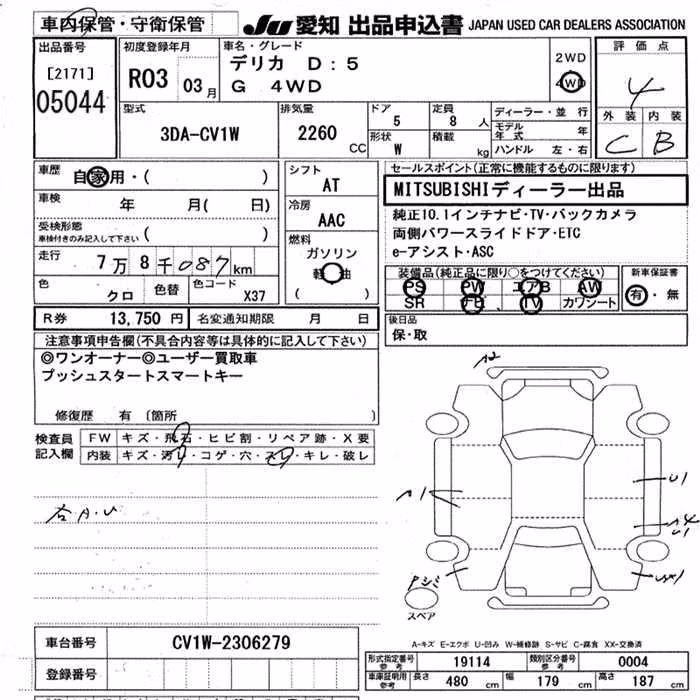 車内保管・守衛保管
JU 愛知 出品申込書 JAPAN USED CAR DEALERS ASSOCIATION
出品番号
[2171]
05044
初度登録年月
R03 03月
車名・グレード
デリカ D:5
G 4WD
2WD
4WD
評価点
4
外装 内装
C B
型式
3DA-CV1W
排気量
2260 CC
ドア
5
形状
W
定員
8 人
積載
kg
ディーラー・並行
モデル年式 年
ハンドル 左・右
車歴
自家用・( )
車検
年 月( 日)
受検形態
車検付きのみ記入して下さい ( )
走行
7万8千087km
色
クロ
色替
色コード
X37
シフト
AT
冷房
AAC
燃料
ガソリン
軽油
( )
セールスポイント(正常に機能するものに限ります)
MITSUBISHIディーラー出品
純正10.1インチナビ・TV・バックカメラ
両側パワースライドドア・ETC
e-アシスト・ASC
装備品(純正品に限り○をつけてください)
PS PW エアB AW
SR ナビ TV カワシート
新車保証書
有・無
R券 13,750 円 名変通知期限 月 日
後日品
保・取
注意事項申告欄(不具合内容等は具体的に記入して下さい)
◎ワンオーナー◎ユーザー買取車
プッシュスタートスマートキー
修復歴 有 〔箇所 〕
検査員記入欄
FW キズ・飛石・ヒビ割・リペア跡・X要
内装 キズ・汚れ・コゲ・穴・スレ・キレ・破レ
A・U
U1
スペア
A-キズ E-エクボ U-凹み W-補修跡 S-サビ C-腐食 XX-交換済
車台番号 CV1W-2306279
登録番号
形式指定番号参考 19114 類別区分番号参考 0004
車庫証明用参考 長さ 480 cm 幅 179 cm 高さ 187 cm